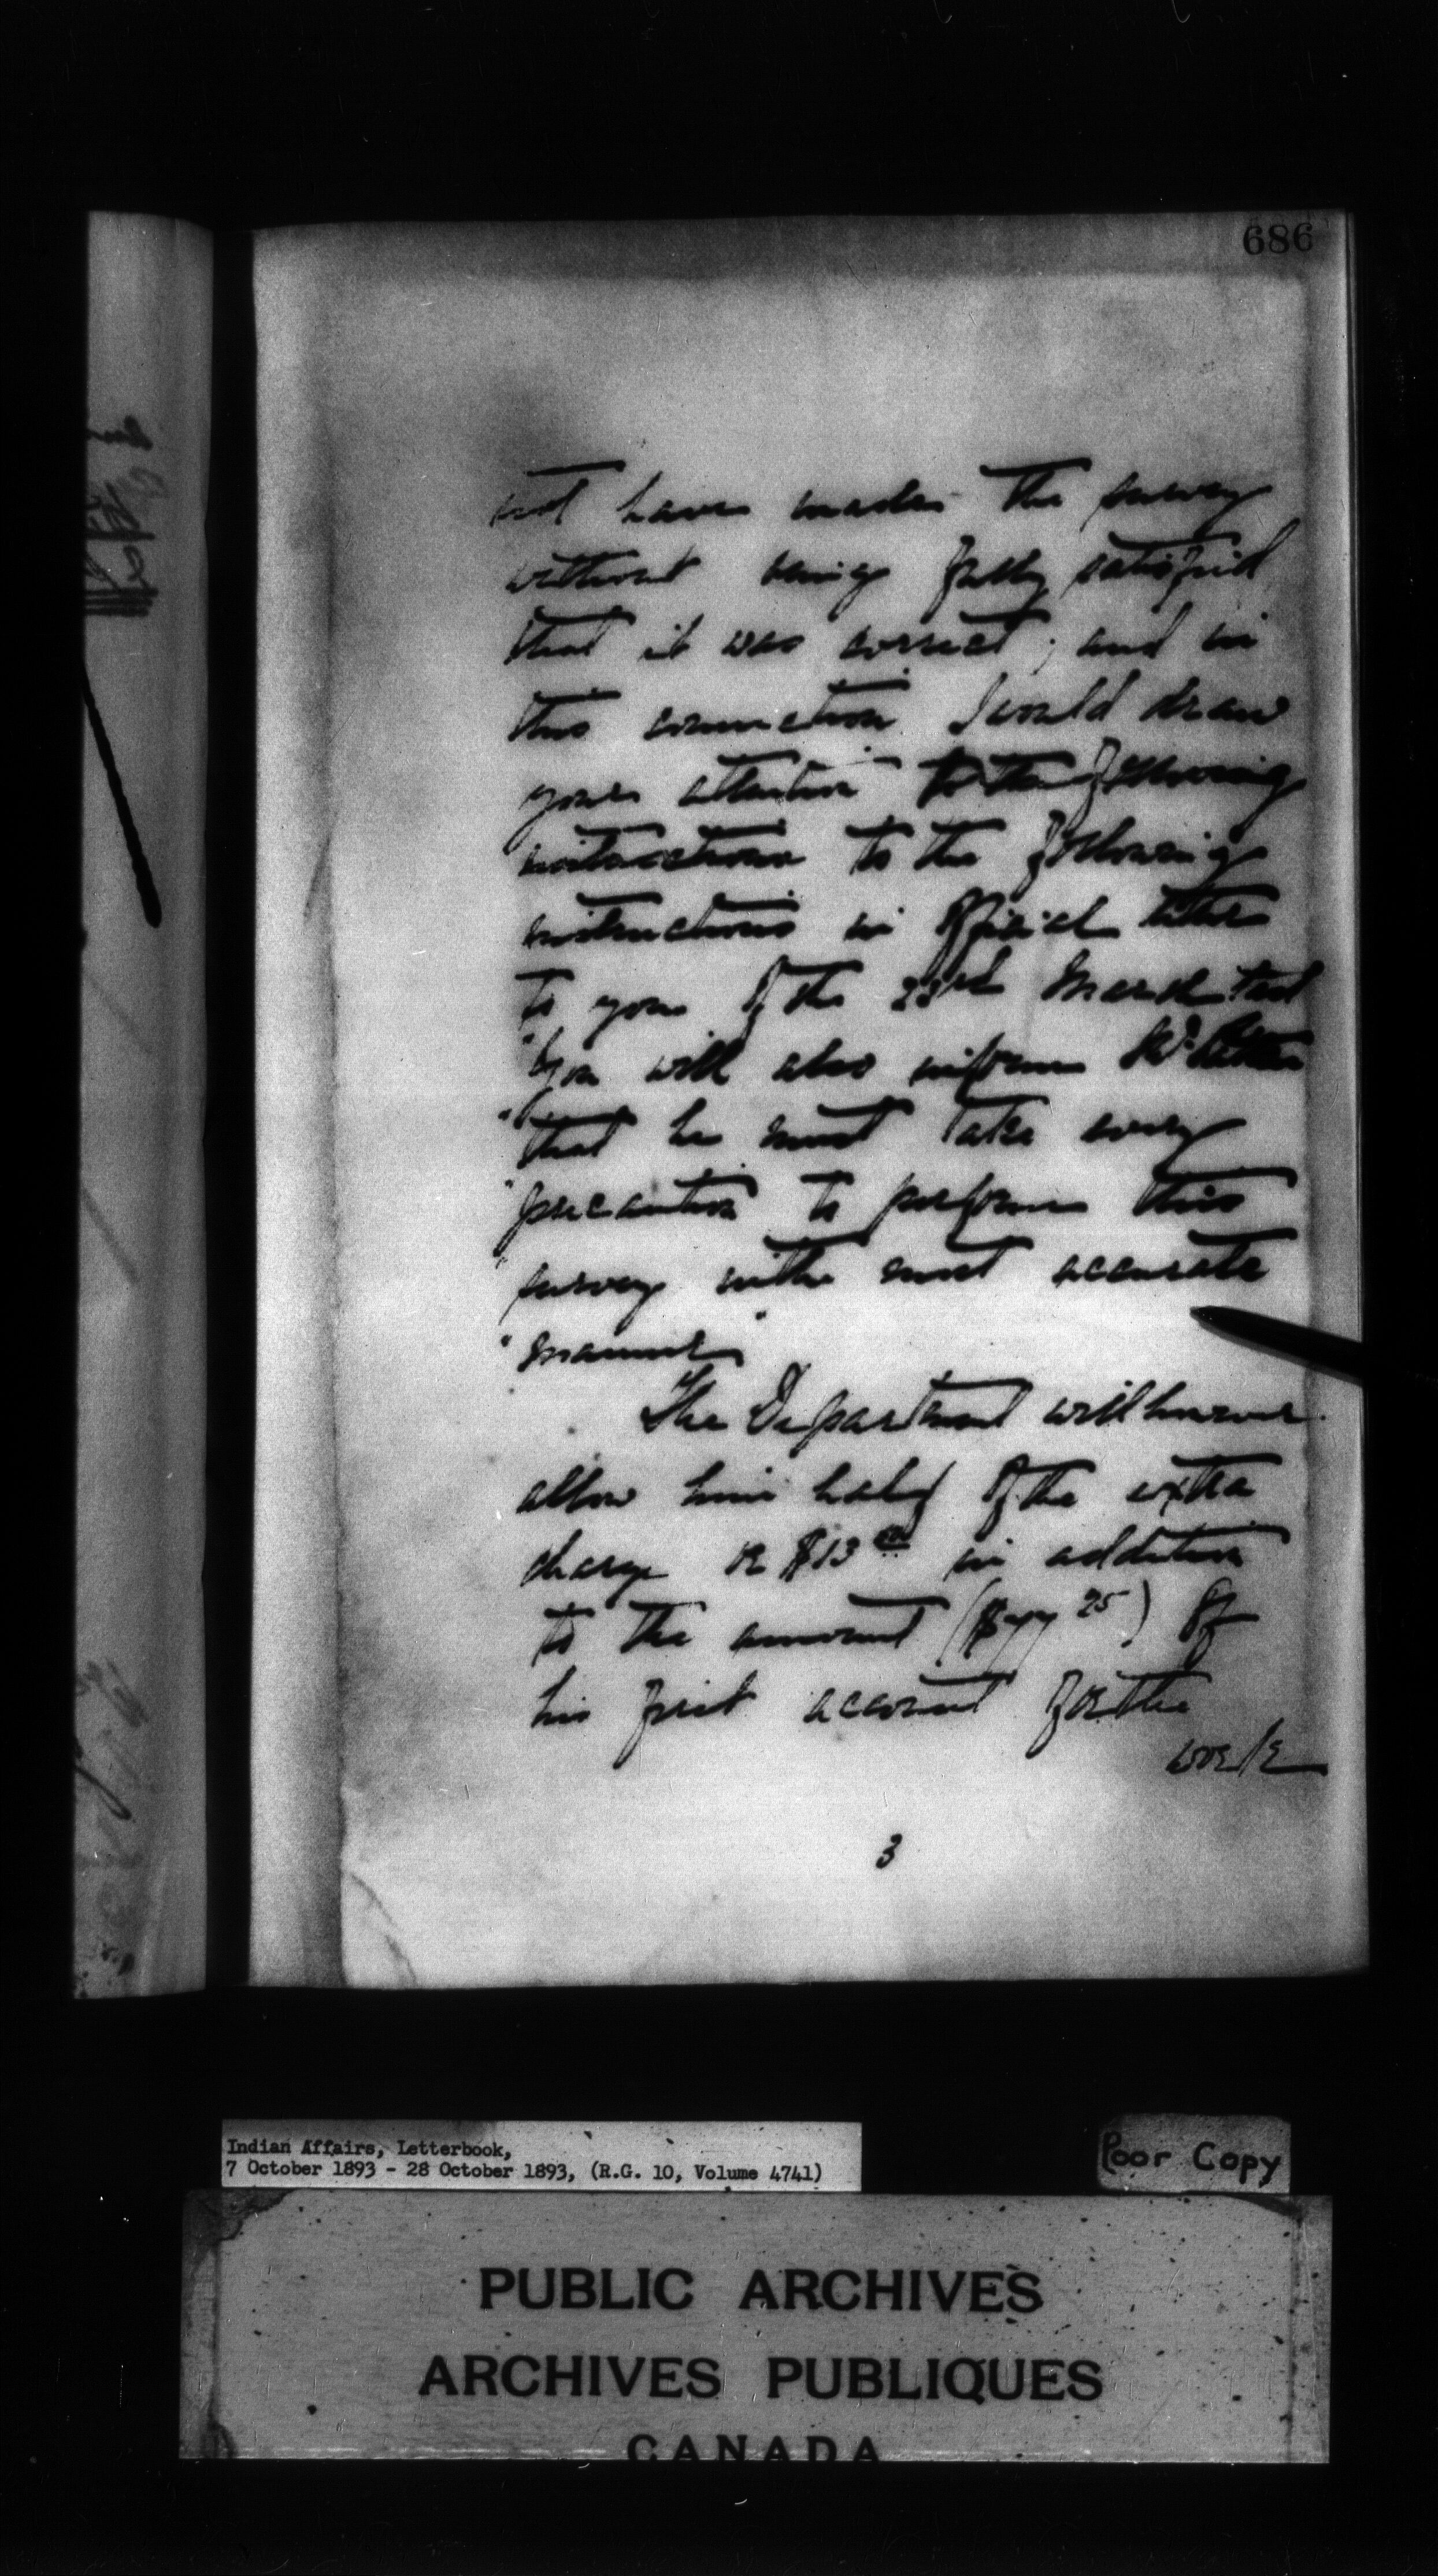 686
not have made the survey
without being fully satisfied
that it was correct; and in
this connection I would draw
your attention to the following
instructions to the following
instructions in official letter
to you of the 23rd March last
"You will also inform Mr.
"that he must take every
"precaution to perform this
"survey in the most accurate
"manner"
The Department will however
allow him half of the extra
charge or $13 00 in addition
to the amount ($77 25) of
his first account for the
work
3
Indian Affairs, Letterbook,
7 October 1893 - 28 October 1893, (R.G. 10, Volume 4741)
Poor Copy
PUBLIC ARCHIVES
ARCHIVES PUBLIQUES
CANADA